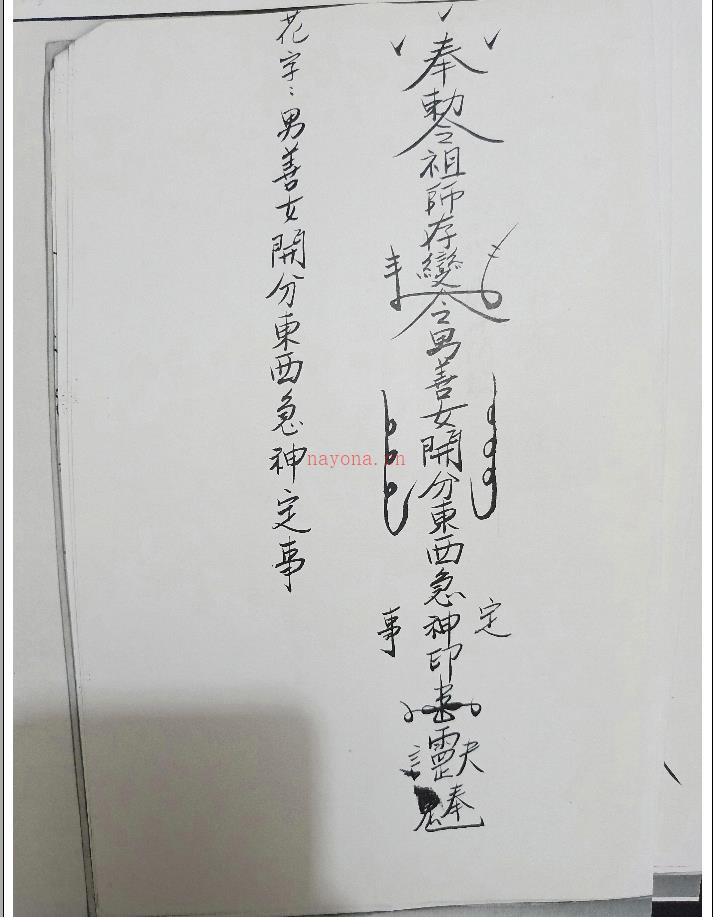 奉勅令祖師存變令男善女開分東西急神印
定
事
花字：男善女開分東西急神定事
nayona.cn